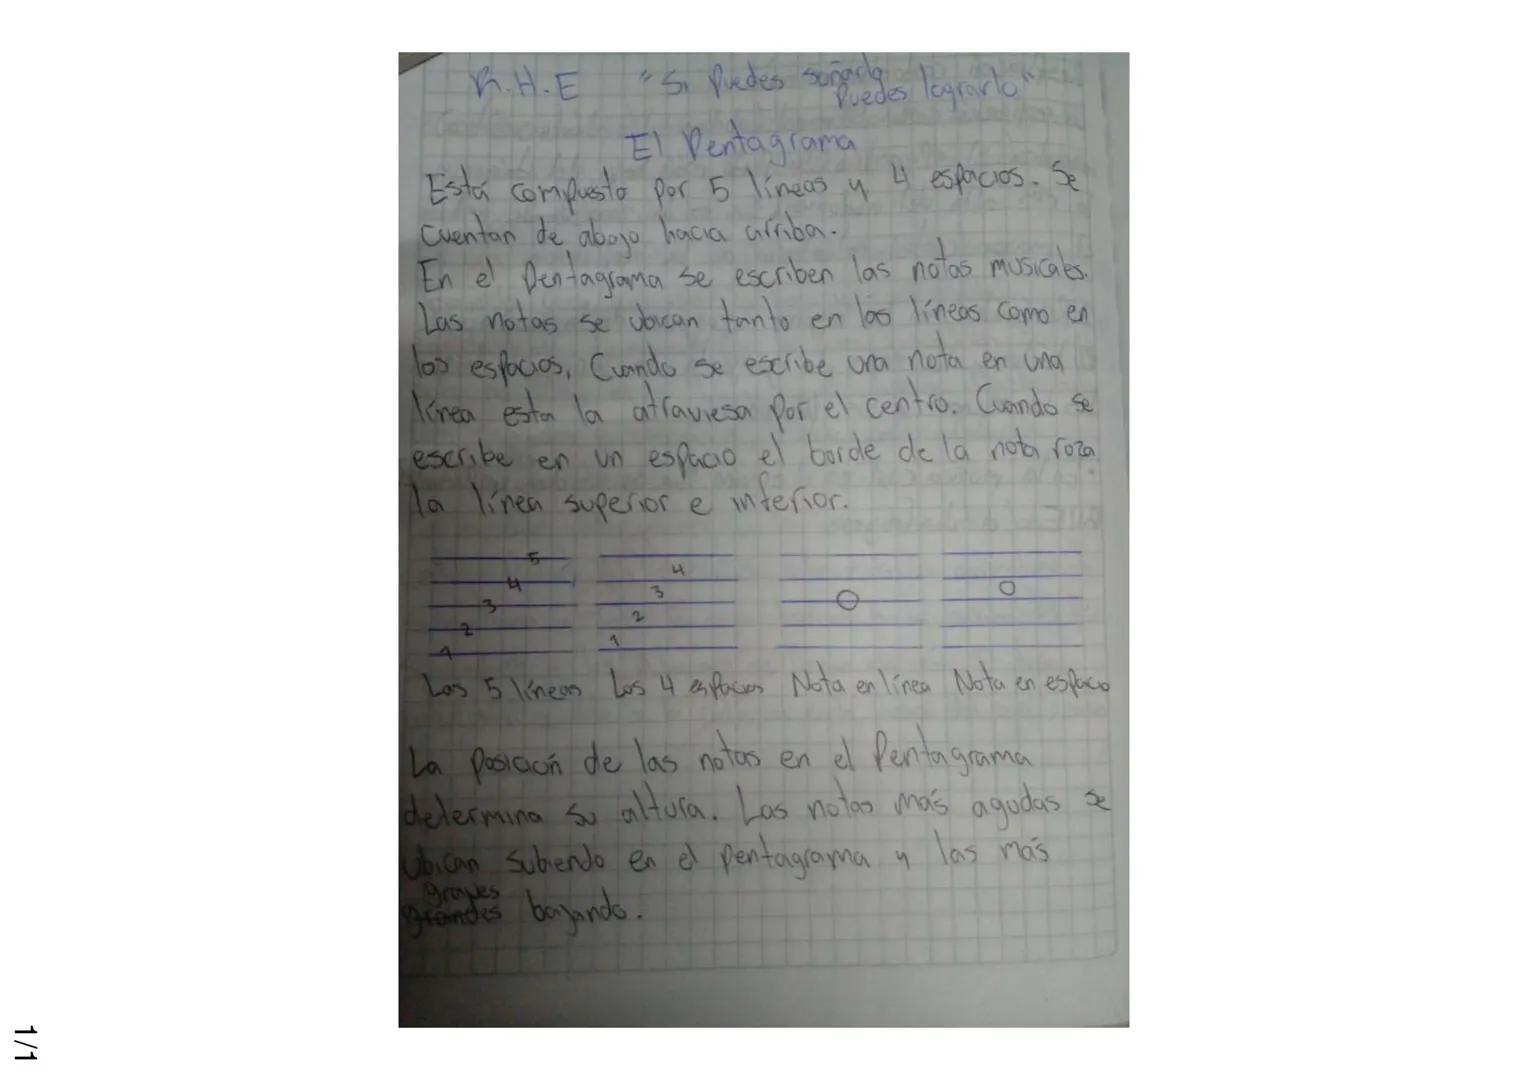 R.H.E "Si Puedes soñarlo
Puedes lograrlo"
El Pentagrama
Está compuesto por 5 líneas y 4 espacios. Se
cuentan de abajo hacia arriba.
En el Pentagrama se escriben las notas musicales.
Las notas se ubican tanto en las líneas como en
los espacios, Cuando se escribe una nota en una
línea esta la atraviesa por el centro. Cuando se
escribe en un espacio el borde de la nota roza
la línea superior e inferior.
5
4
3
2
1
4
3
2
1
Las 5 líneas Los 4 espacios Nota en línea Nota en espacio
La posición de las notas en el Pentagrama
determina su altura. Las notas más agudas se
ubican subiendo en el pentagrama y las más
graves
grandes bajando.
1/1